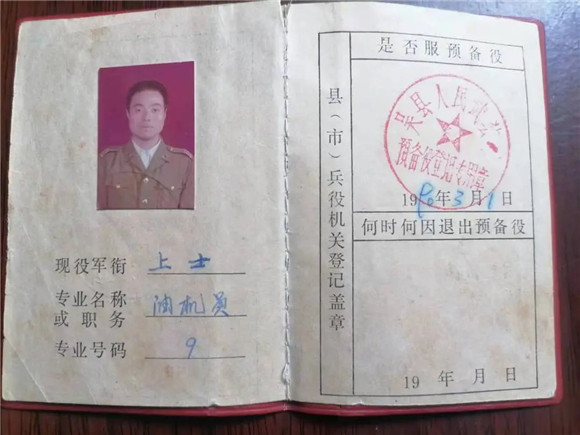 现役军衔 上士
专业名称
或职务 油机员
专业号码 9
县（市）兵役机关登记盖章
是否服预备役
吴县人民武装
预备役登记专用章
1990年3月1日
何时何因退出预备役
19 年 月 日